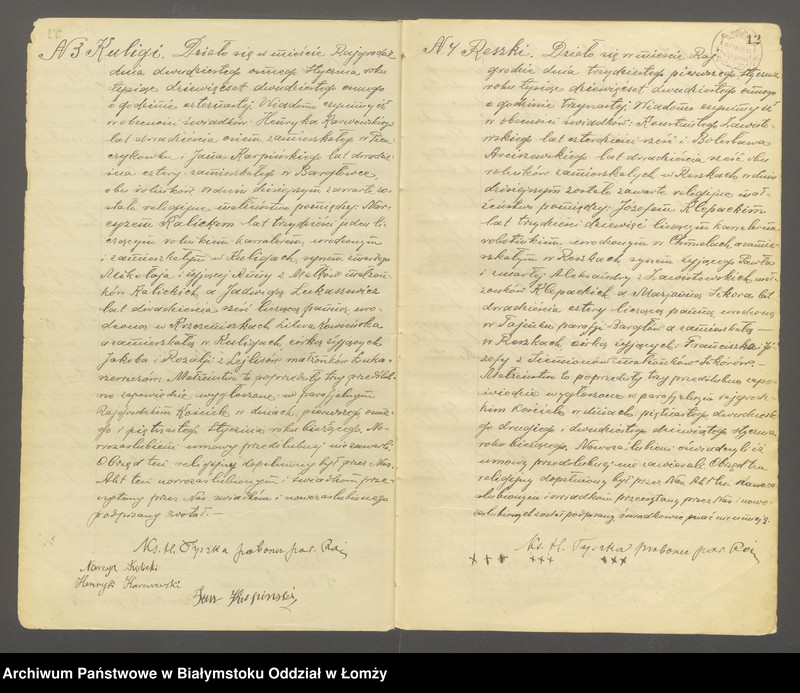 N 3 Kuligi. Działo się w mieście Rajgrodzie
dnia dwudziestego ósmego Stycznia roku
tysiąc dziewięćset dwudziestego ósmego
o godzinie czternastej. Wiadomo czynimy iż
w obecności świadków: Henryka Karwowskiego
lat dwadzieścia osiem zamieszkałego w
i Jana Karpińskiego lat dwadzie-
ścia cztery zamieszkałego w Bargłówce,
obu rolników w dniu dzisiejszym zawarte zo-
stało religijne małżeństwo pomiędzy: Nar-
cyzem Kalickim lat trzydzieści jeden li-
czącym rolnikiem kawalerem, urodzonym
i zamieszkałym w Kuligach, synem zmarłego
Mikołaja i żyjącej Anny z małżon-
ków Kalickich, a Jadwigą Łukaszewicz
lat dwadzieścia sześć liczącą panną uro-
dzoną w Litwa Kowieńska
a zamieszkałą w Kuligach, córką żyjących
Jakóba i Rozalji z małżonków Łuka-
szewiczów. Małżeństwo to poprzedziły trzy przedślub-
ne zapowiedzie, wygłoszone w parafjalnym
Rajgrodzkim Kościele w dniach, pierwszego ósme-
go i piętnastego Stycznia roku bieżącego. No-
wozaślubieni umowy przedślubnej nie zawarli.
Obrząd ten religijny dopełniony był przez Nas.
Akt ten nowozaślubionym i świadkom prze-
czytany przez Nas świadków i nowozaślubionego
podpisany został. —
Ks. H. Tyszka proboszcz par. Raj
Narcyz Kalicki
Henryk Karwowski
Jan Karpiński
12
N 4 Reszki. Działo się w mieście Raj
grodzie dnia trzydziestego pierwszego Stycznia
roku tysiąc dziewięćset dwudziestego ósmego
o godzinie trzynastej. Wiadomo czynimy iż
w obecności świadków: Konstantego Zawisto-
wskiego lat czterdzieści sześć i Bolesława
Arciszewskiego lat dwadzieścia sześć obu
rolników zamieszkałych w Reszkach, w dniu
dzisiejszym zostało zawarte religijne mał-
żeństwo pomiędzy: Józefem Klepackim
lat trzydzieści dziewięć liczącym kawalerem
robotnikiem urodzonym w a zamie-
szkałym w Reszkach synem żyjącego Pawła
i zmarłej Aleksandry z Zawistowskich, mał-
żonków Klepackich a Marjanną Sikora lat
dwadzieścia cztery liczącą panną urodzoną
w Tajenku parafji Bargłów a zamieszkałą —
w Reszkach, córką żyjących: Franciszka i Jó-
zefy z małżonków Sikorów. —
Małżeństwo to poprzedziły trzy przedślubne zapo-
wiedzie wygłoszone w parafjalnym rajgrodz-
kim Kościele w dniach: piętnastego, dwudzieste-
go drugiego i dwudziestego dziewiątego Stycznia
roku bieżącego. Nowozaślubieni oświadczyli iż
umowy przedślubnej nie zawierali. Obrząd ten
religijny dopełniony był przez Nas. Akt ten nowoza-
ślubionym i świadkom przeczytany przez Nas i nowo-
zaślubionych został podpisany, świadkowie pisać nie umieją.
Ks. H. Tyszka proboszcz par. Raj
+++ xxx xxx
Archiwum Państwowe w Białymstoku Oddział w Łomży